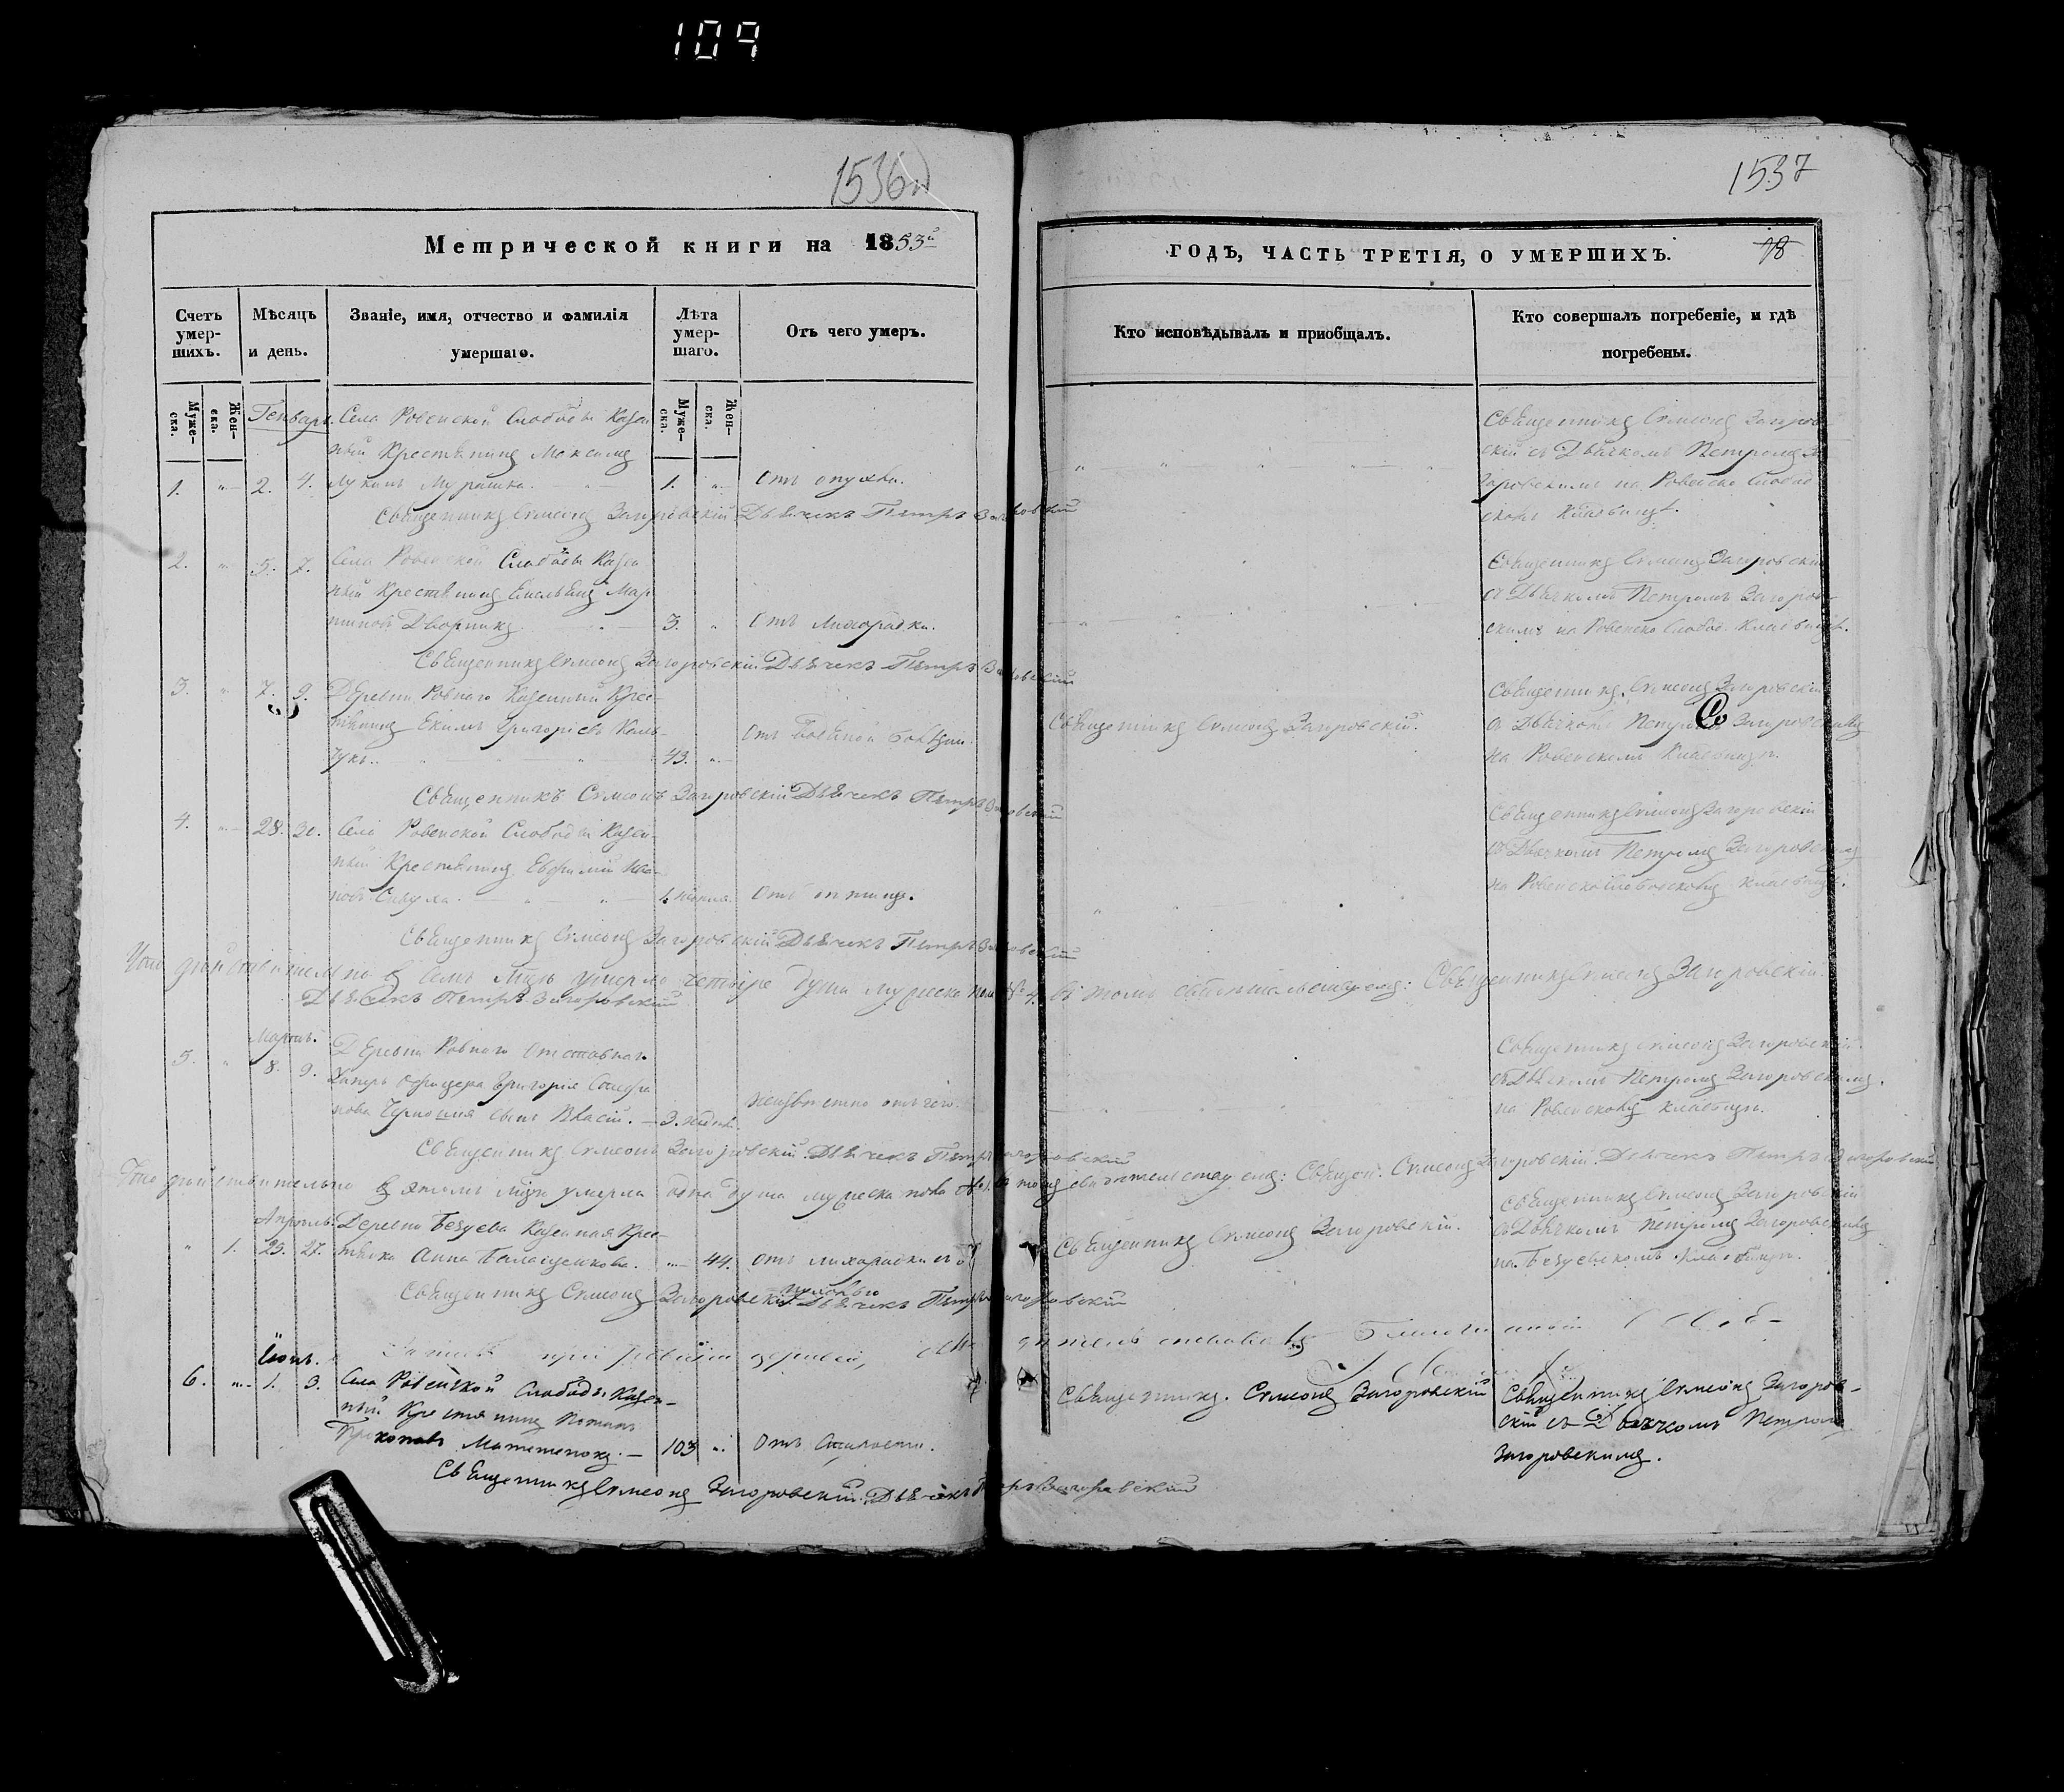 109
1536
1537
Метрической книги на 1853й
ГОДЪ, ЧАСТЬ ТРЕТІЯ, О УМЕРШИХЪ.
78
Счетъ умер-шихъ.
Мѣсяцъ и день.
Званіе, имя, отчество и фамилія умершаго.
Лѣта умер-шаго.
Отъ чего умеръ.
Кто исповѣдывалъ и приобщалъ.
Кто совершалъ погребеніе, и гдѣ погребены.
Муже-ска.
Жен-ска.
Муже-ска.
Жен-ска.
Генварь. Села Ровенской Слободы Казен
ный Крестьянинъ Максимъ
1. 2. 4. Мурашка. 1. Отъ опухли.
Священникъ Симеонъ Загоров
скій съ Дьячкомъ Петромъ За
горовскимъ на Ровенско Слобод
скомъ Кладбищѣ.
Священникъ Симеонъ Загоровскій Дьячекъ Петръ Загоровскій
2. 5. 7. Села Ровенской Слободы Казен
ный Крестьянинъ Емельянъ Мар
тиновъ Дворникъ 3. Отъ лихорадки.
Священникъ Симеонъ Загоровскій
съ Дьячкомъ Петромъ Загоров-
скимъ на Ровенско Слобод. Кладбищѣ.
Священникъ Симеонъ Загоровскій Дьячекъ Петръ Загоровскій
3. 7. 9. Деревни Ровного Казенный Крес-
тьянинъ Екимъ Григоріевъ
43. Отъ
Священникъ Симеонъ Загоровскій.
Священникъ Симеонъ Загоровскій
съ Дьячкомъ Петромъ Загоровскимъ
на Ровенскомъ Кладбищѣ.
Священникъ Симеонъ Загоровскій Дьячекъ Петръ Загоровскій
4. 28. 30. Села Ровенской Слободы Казен-
ный Крестьянинъ Евфимій Ива-
новъ
Священникъ Симеонъ Загоровскій
съ Дьячкомъ Петромъ Загоровскимъ
на Ровенско Слободскомъ кладбищѣ.
Священникъ Симеонъ Загоровскій Дьячекъ Петръ Загоровскій
Что дѣйствительно въ семъ м-цѣ умерло четыре душа мужеска пола № 4. въ томъ свидѣтельствуемъ: Священникъ Симеонъ Загоровскій.
Дьячекъ Петръ Загоровскій
Мартъ.
5. 8. 9. Деревни Ровного отставнаго
Унтеръ офицера Григорія
сынъ Власій. 3. недѣл. неизвѣстно отъ чего.
Священникъ Симеонъ Загоровскій
съ Дьячкомъ Петромъ Загоровскимъ.
на Ровенскомъ кладбищѣ.
Священникъ Симеонъ Загоровскій. Дьячекъ Петръ Загоровскій
Что дѣйствительно въ этомъ м-цѣ умерла одна душа мужеска пола № 1. въ томъ свидѣтельствуемъ: Священ. Симеонъ Загоровскій. Дьячекъ Петръ Загоровскій
Апрѣль.
1. 25. 27. Деревни Безуева Казенная Крес-
тьянка Анна 44. Отъ лихорадки
Священникъ Симеонъ Загоровскій.
Священникъ Симеонъ Загоровскій
съ Дьячкомъ Петромъ Загоровскимъ
на Безуевскомъ кладбищѣ.
Священникъ Симеонъ Загоровскій Дьячекъ Петръ Загоровскій
Іюнь.
6. 1. 3. Села Ровенской Слободы Казен-
ный Крестьянинъ Потапъ
Прокоповъ 103 Отъ Старости.
Священникъ. Симеонъ Загоровскій
Священникъ Симеонъ Загоров-
скій съ Дьячкомъ Петромъ
Загоровскимъ.
Священникъ Симеонъ Загоровскій. Дьячекъ Петръ Загоровскій